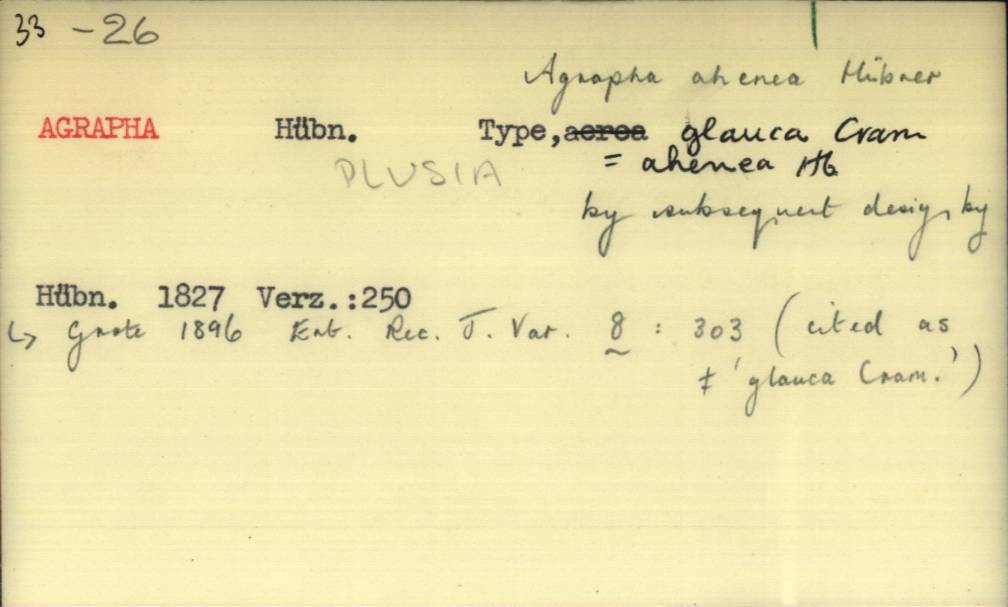 33 -26
Agrapha ahenea Hübner
AGRAPHA Hübn. Type, aerea glauca Cram
= ahenea Hb
PLUSIA
by subsequent desig, by
Hübn. 1827 Verz.:250
↳ Grote 1896 Ent. Rec. J. Var. 8 : 303 (cited as
‡ 'glauca Cram.')